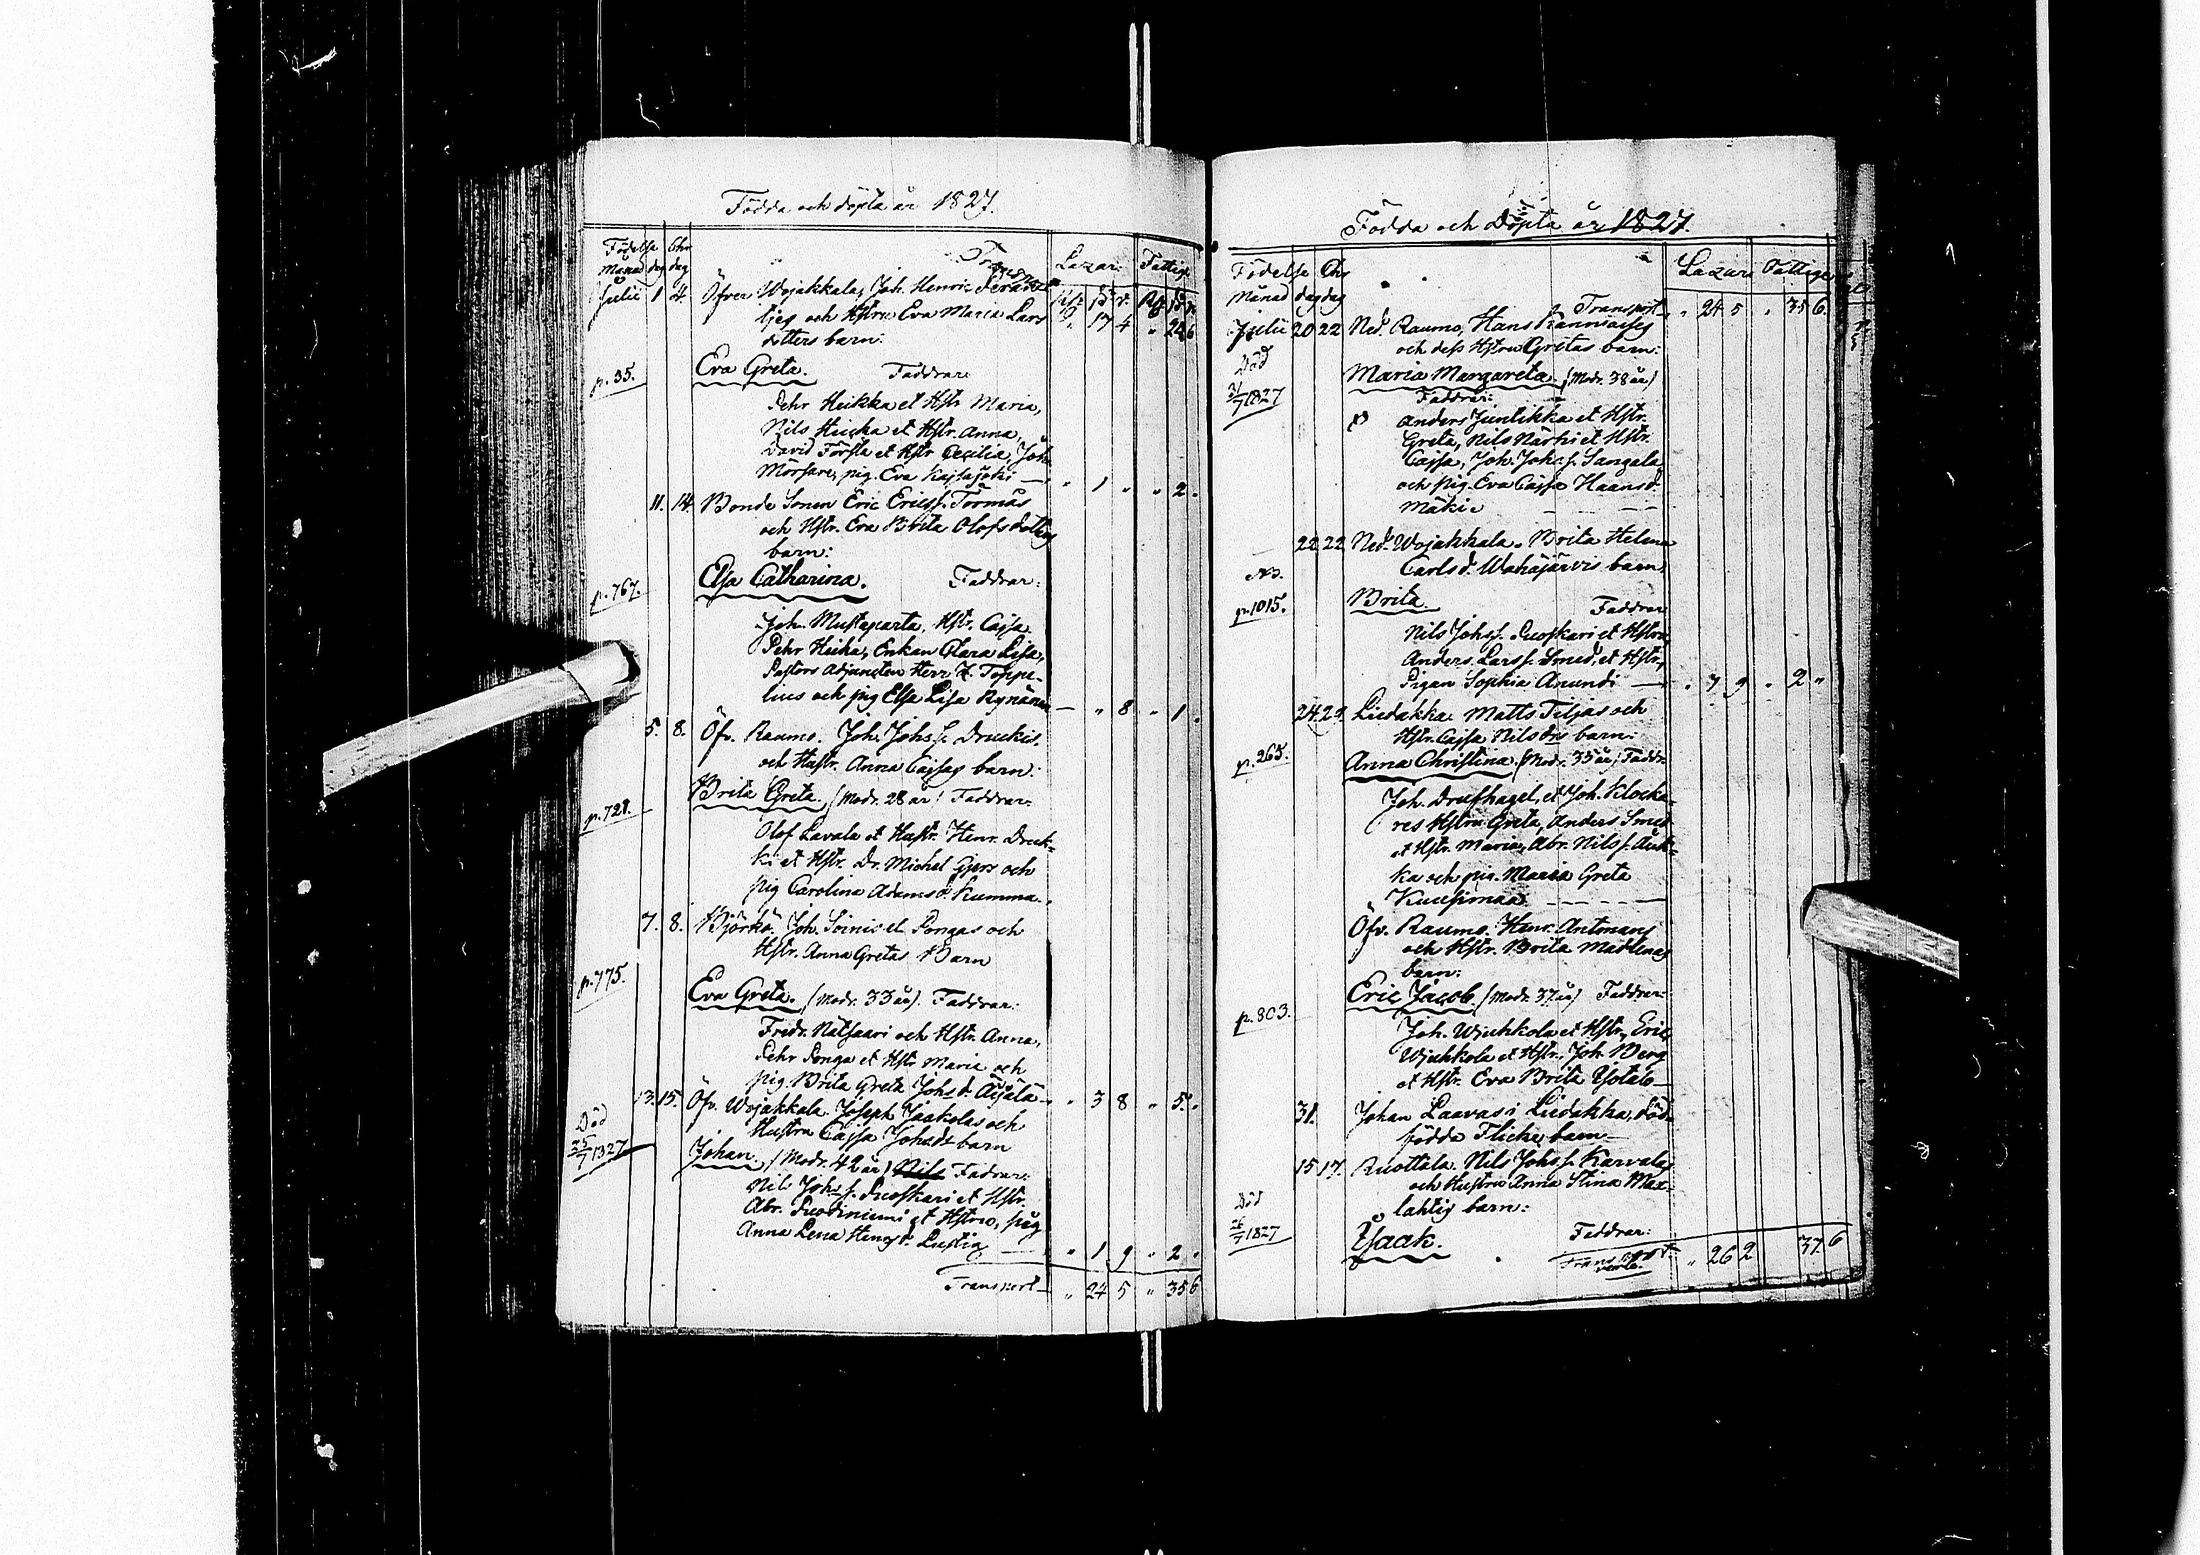 Födda och döpta år 1827.
Födelse Chr
Månad dag dag Lazar: Fattige
Transport
Julii 1 4. Öfver Wojakkala, Joh. Henric
och Hstru Eva Maria Lars " 17 4 " 24 6
dotters barn:
p. 35. Eva Greta. Faddrar:
Pehr Heikka et Hstr Maria,
Nils Heikka et Hstr. Anna,
David Första et Hstr Cecilia, Joh.
pig. Eva Kajsa — " 1 " " 2 "
11. 14. Bonde Sonen Eric Ericss. Törmäs
och Hstr. Eva Brita Olofsdotters
barn:
p. 767. Elsa Catharina. Faddrar:
Joh. Mustaparta, Hstr. Cajsa
Pehr Heika, Enkan Clara Lisa,
Pastors Adjuncten Herr Z. Toppe-
lius och pig Elsa Lisa Rynänen — " 8 " 1 "
5. 8. Öfv. Raumo. Joh. Johs s. Druckis,
och Hustr. Anna Cajsas barn:
p. 721. Brita Greta. (Modr. 28 år) Faddrar:
Olof Lavala et Hustr. Henr. Druc-
ki et Hstr. Dr. Michel Gyers och
pig Carolina Adamsd. Kumma.
7. 8. Björkö. Joh. Pongas och
Hstr. Anna Gretas Barn
p. 775. Eva Greta. (Modr. 33 år). Faddrar:
Fredr. Nätsaari och Hstr. Anna,
Pehr Ponga et Hstr Maria och
pig. Brita Greta Johsd. Äijälä — " 3 8 " 5 "
13. 15. Öfv. Wojakkala. Joseph Jaakolas och
Hustru Cajsa Johsdr barn
Död 25/7 1827 Johan. (Modr. 42 år) Nils Fadrar:
Nils Johs s. Puoskari et Hstr
Abr. Puodiniemi et Hstru, pig
Anna Lena Henrsd. — " 1 9 " 2 "
Transport — " 24 5 " 35 6
Födda och Döpta år 1827.
Födelse Chr
Månad dag dag Lazar: Fattige
Transport " 24 5 " 35 6
Julii 20 22 Ned. Raumo, Hans
och dess Hstru Gretas barn:
Död Maria Margareta. (Modr. 38 år)
/7 1827 Faddrar:
Anders Juntikka et Hstr.
Greta, Nils Närhi et Hstr.
Cajsa, Joh. Johs s. Sangala
och pig. Eva Cajsa Haansd.
Mäki
22 22 Ned. Wojakkala. Brita Helena
Carlsd. Wähäjärvis barn:
p. 1015. Brita. Faddrar
Nils Johs s. Puoskari et Hstru,
Anders Lars s. Smed, et Hstr,
Pigan Sophia Anundi — " 7 9 " 2 "
24 29 Liedakka. Matts Tiljas och
Hstr. Cajsa Nilsdrs barn:
p. 265. Anna Christina. (Modr. 35 år) Faddr:
Joh. Drufhagel, et Joh. Klocka-
res Hstru Greta, Anders Smed
et Hstr. Maria, Abr. Nils s.
ka och pig. Maria Greta
Öfv. Raumo. Henr. Antmans
och Hstr. Brita Madlenas
barn:
p. 803. Eric Jacob. (Modr. 37 år) Faddrar:
Joh. Wiuhkola et Hstr, Eric
Wiuhkola et Hstr, Joh. Berg
et Hstr. Eva Brita Yotalo
31. Johan Laavas i Liedakka, död-
födda Flicke barn —
15 17. Ruottala. Nils Johs s. Karvalas
och Hustru Anna Stina Max-
lahtis barn:
Död 26/7 1827 Isaak. Faddrar:
Transport " 26 2 37 6